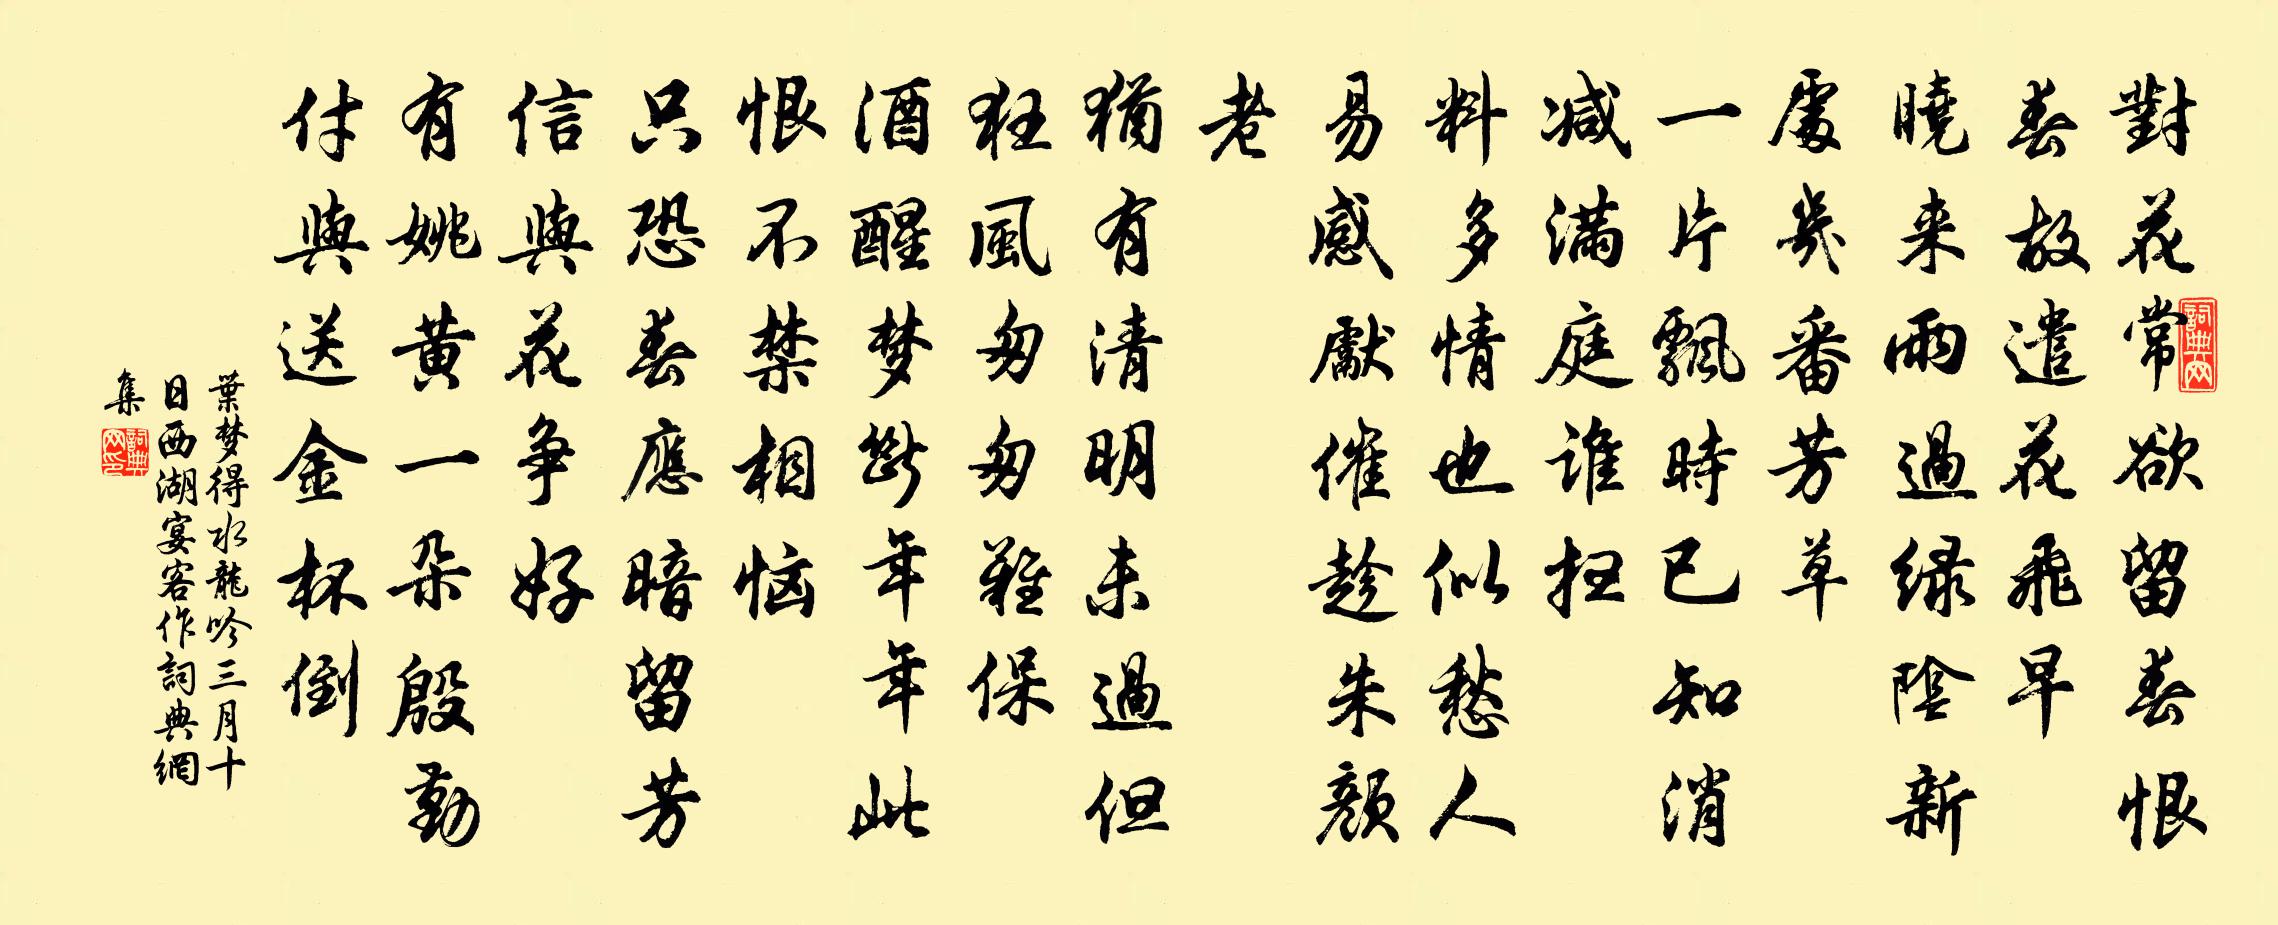 對花常欲留春恨
春故遣花飛早
曉来雨過綠陰新
處幾番芳草
一片飄時已知消
减滿庭誰掃
料多情也似愁人
易感獻催趁朱顏
老
猶有清明未過但
狂風匆匆難保
酒醒梦斷年年此
恨不禁相惱
只恐春應暗留芳
信與花争好
有姚黄一朵殷勤
付與送金杯倒
葉梦得水龍吟三月十
日西湖宴客作詞典網
集
詞典网
詞典网印